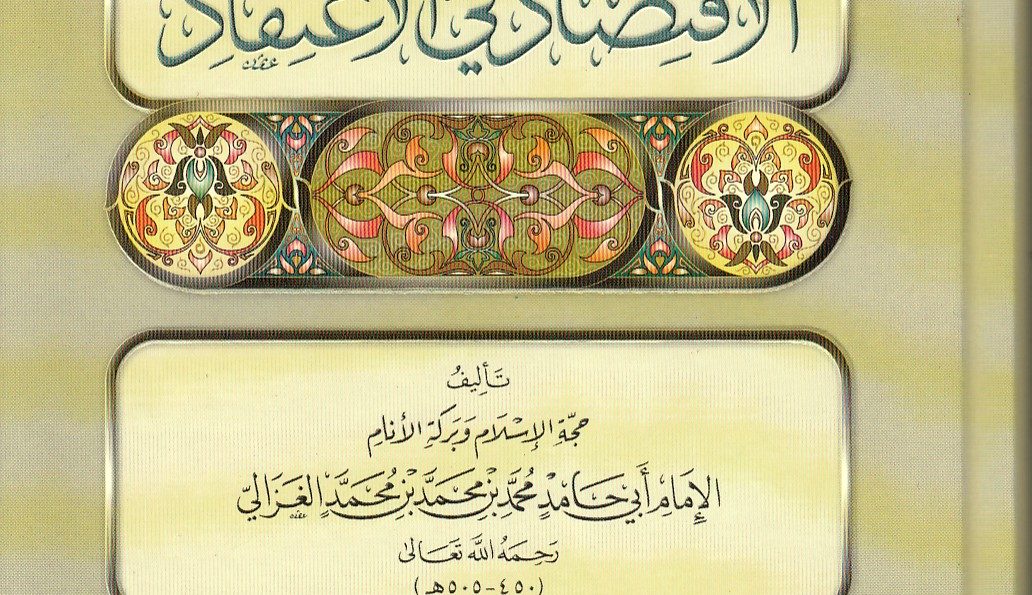 الاقتصاد في الاعتقاد
تَأليفُ
حجَّة الإِسْلَام وَبَرَكَة الأنام
الإِمَام أَبي حَامدٍ مُحَمَّد بْن محَمَّد بْن مُحَمَّدٍ الغَزَاليّ
رَحِمَهُ اللهُ تَعَالىٰ
(٤٥٠-٥٠٥هـ)